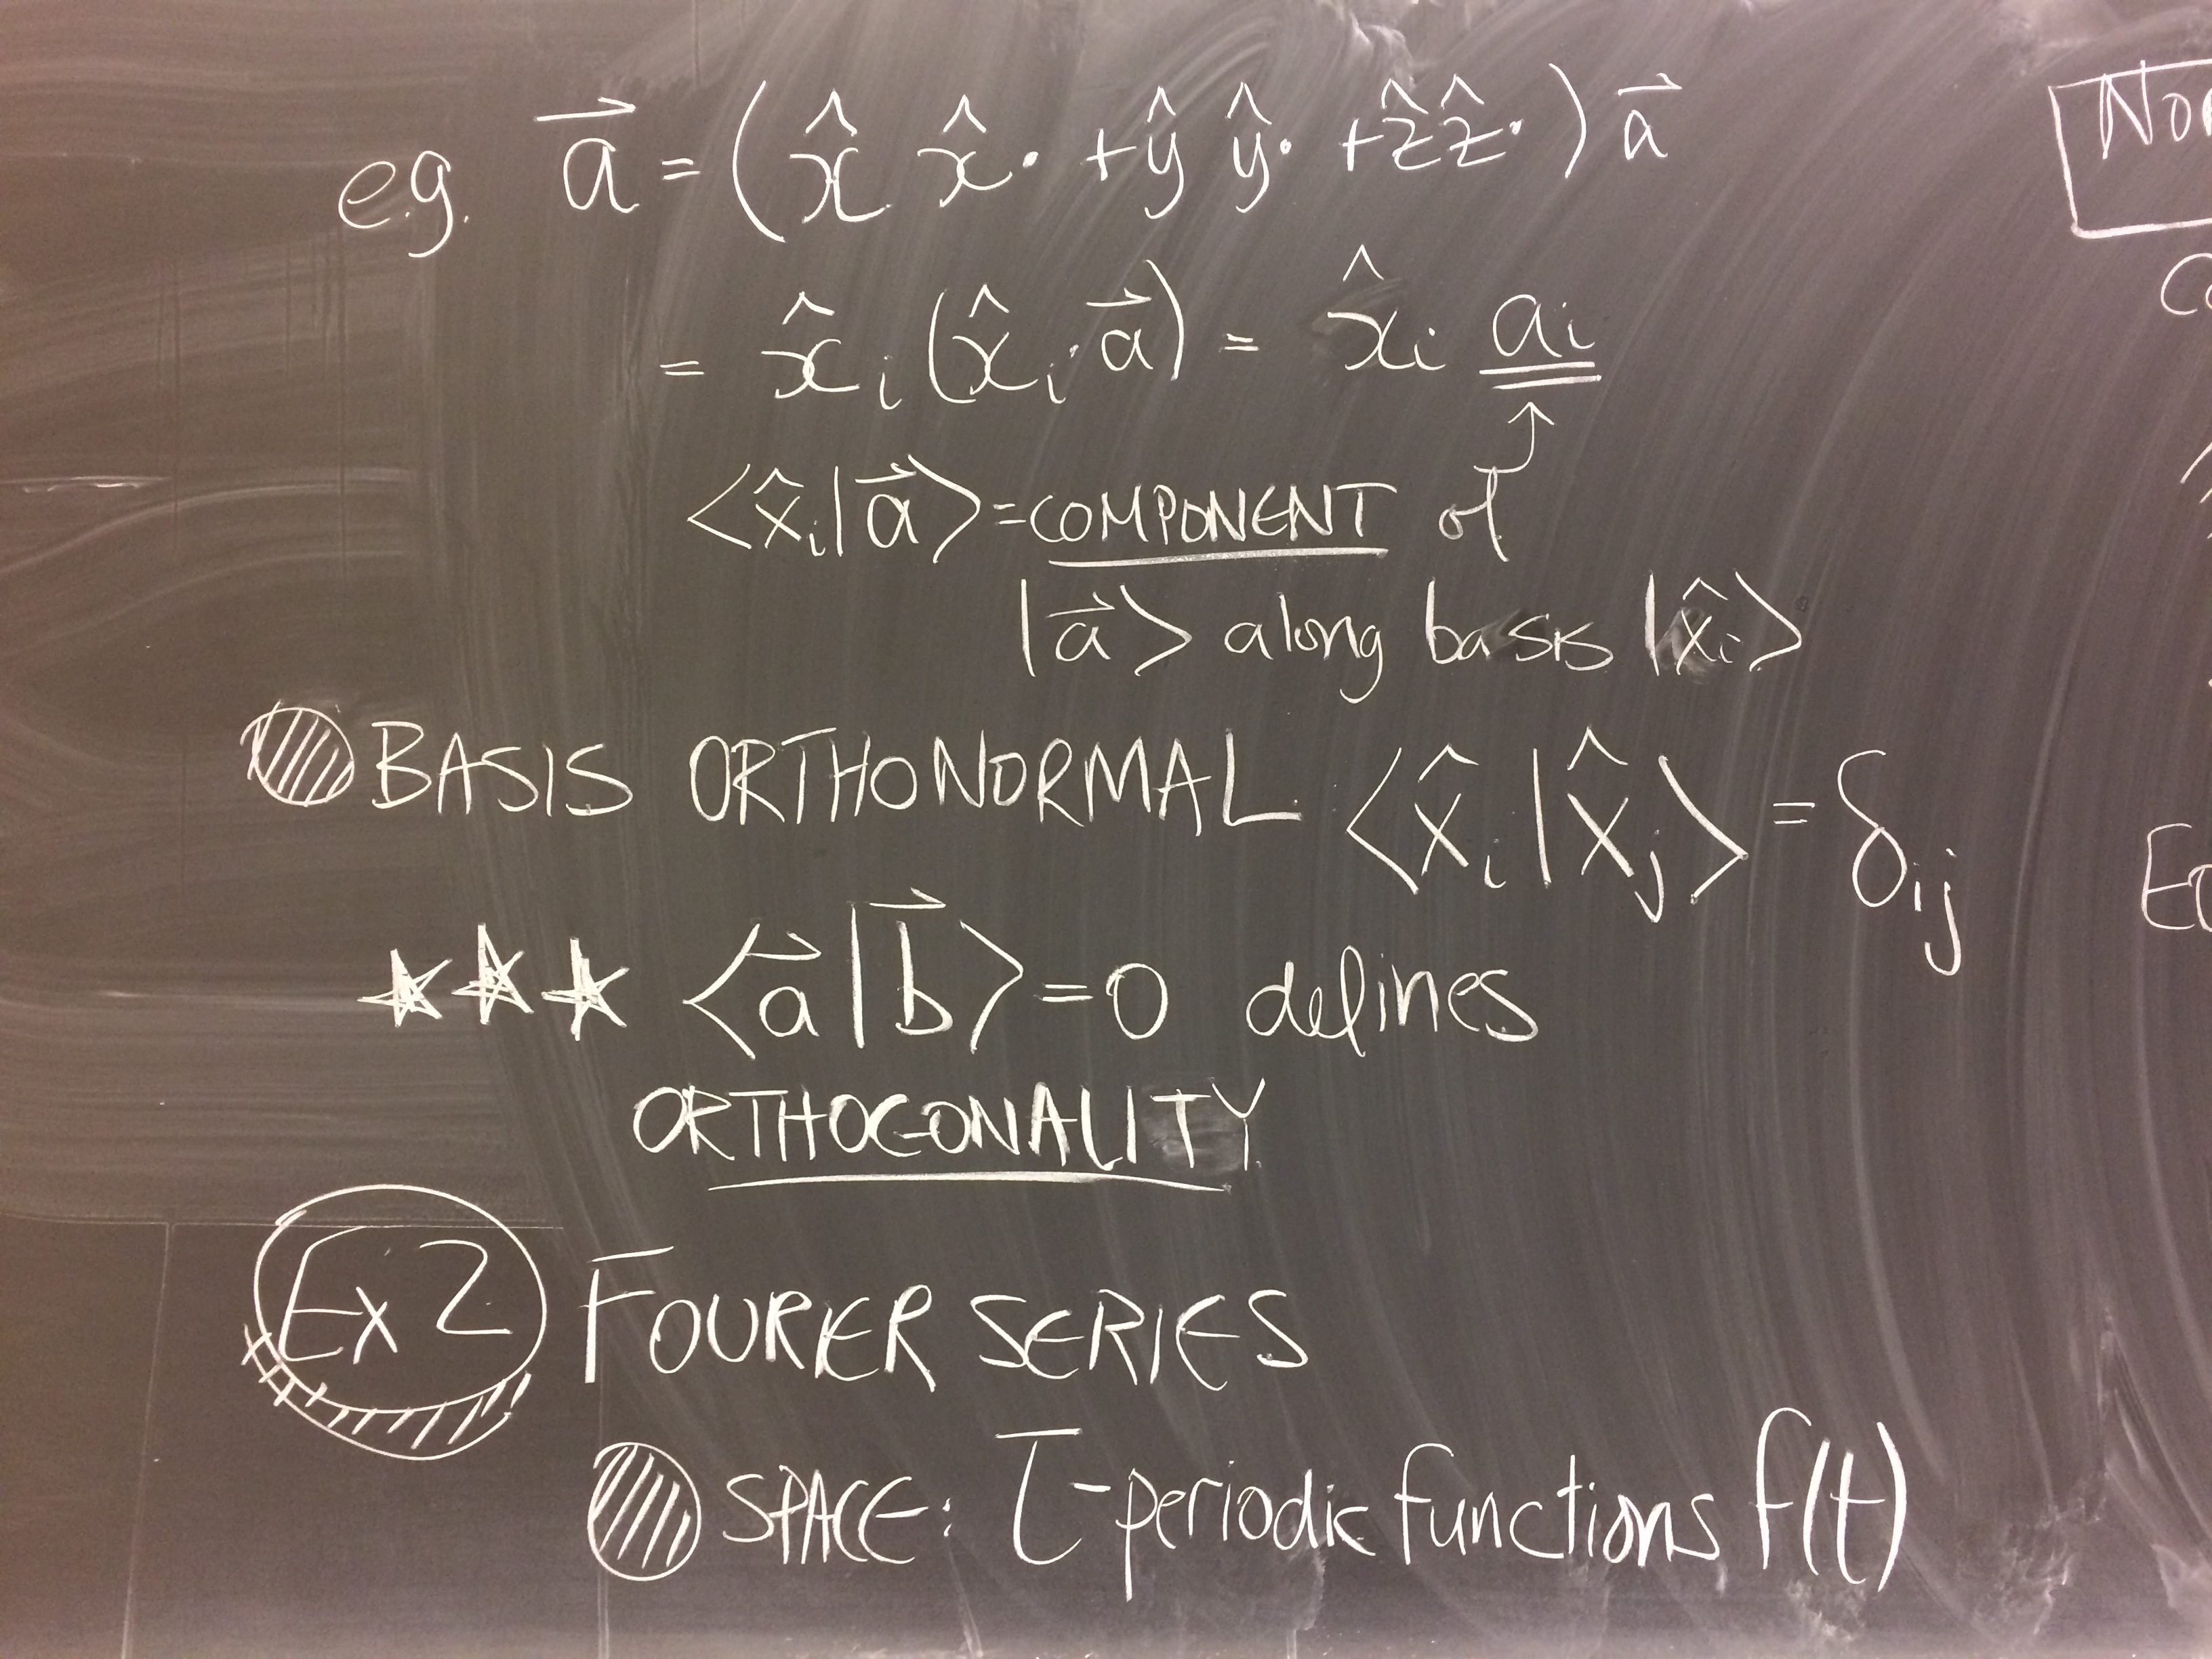 e.g. \vec{a} = (x̂ x̂· + ŷ ŷ· + ẑ ẑ· ) \vec{a}
= x̂_i (x̂_i · \vec{a}) = x̂_i a_i
⟨x̂_i|\vec{a}⟩ = COMPONENT of
|\vec{a}⟩ along basis |x̂_i⟩
BASIS ORTHONORMAL ⟨x̂_i|x̂_j⟩ = δ_ij
★★★ ⟨\vec{a}|\vec{b}⟩ = 0 defines
ORTHOGONALITY
Ex 2 FOURIER SERIES
SPACE: T-periodic functions f(t)